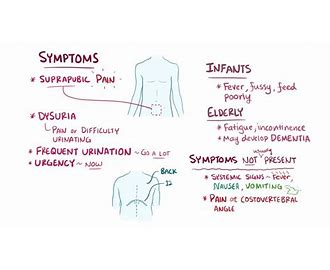 SYMPTOMS
* SUPRAPUBIC PAIN
* DYSURIA
↳ PAIN or DIFFICULTY
URINATING
* FREQUENT URINATION ~ GO A LOT
* URGENCY ~ NOW
BACK
12
INFANTS
* Fever, fussy, feed
poorly
ELDERLY
* Fatigue, incontinence
* May develop DEMENTIA
usually
SYMPTOMS NOT PRESENT
* SYSTEMIC SIGNS ~ Fever,
NAUSEA, VOMITING
* PAIN at COSTOVERTEBRAL
ANGLE